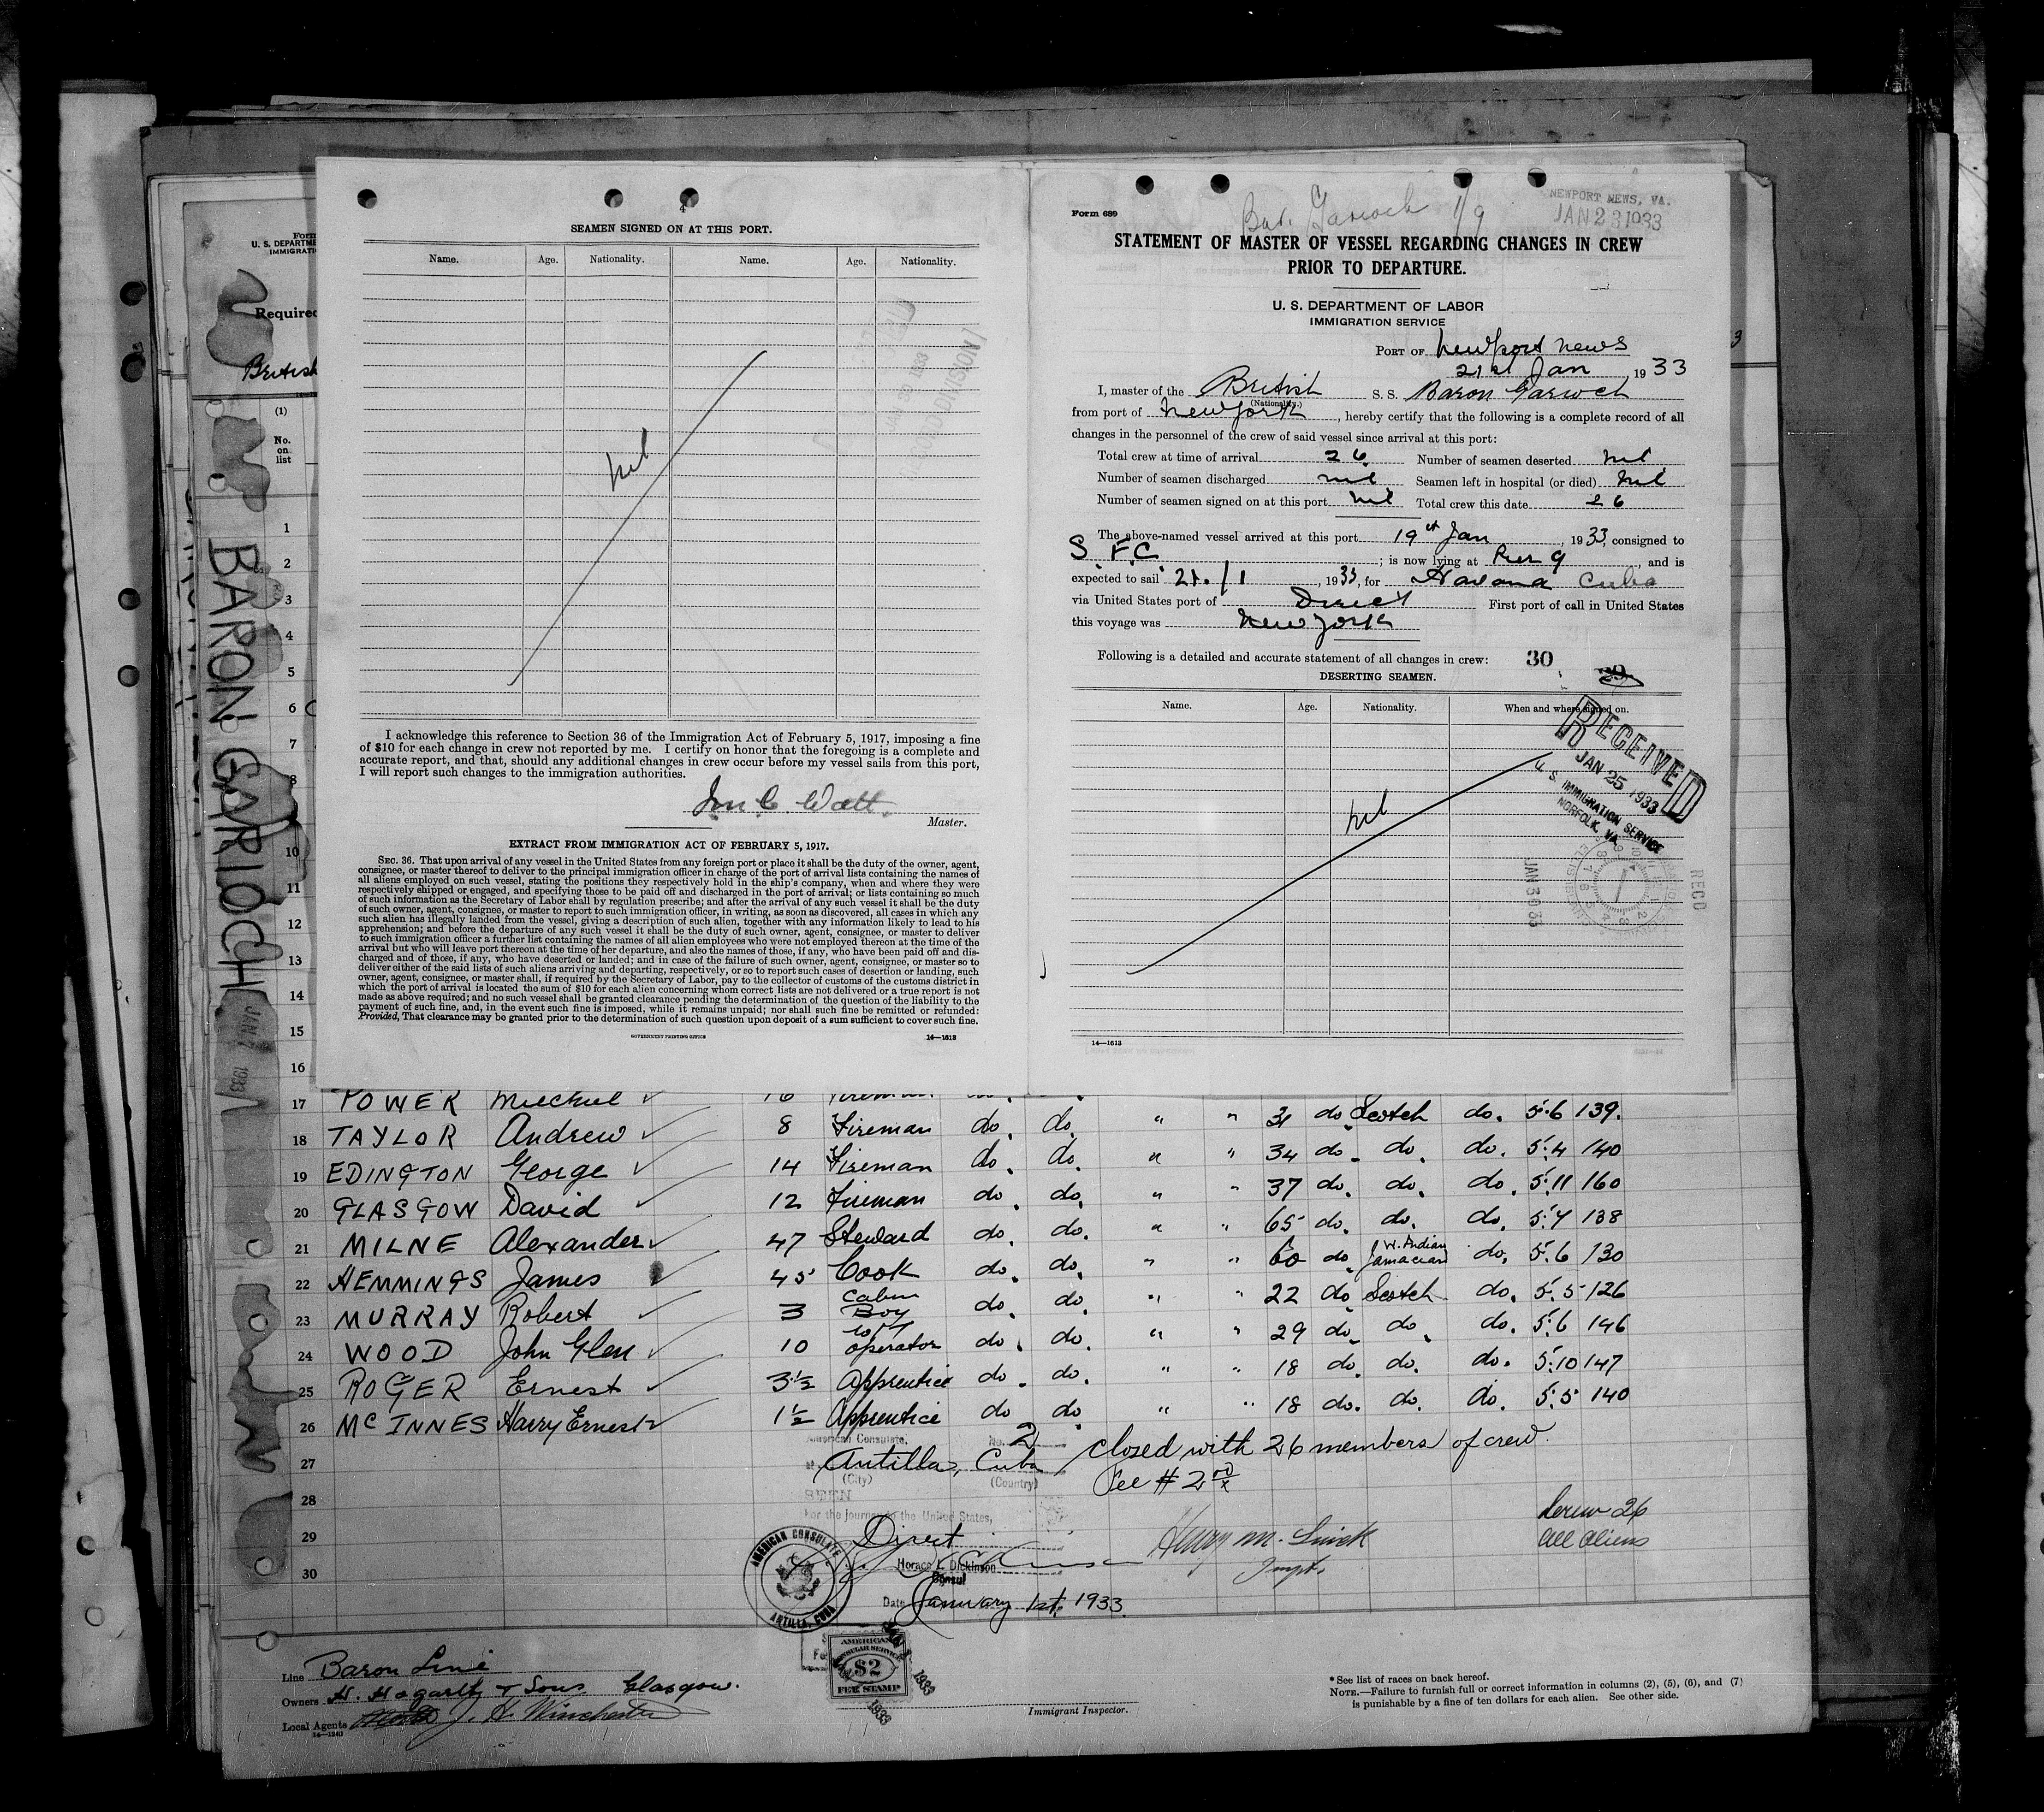 4
SEAMEN SIGNED ON AT THIS PORT.
Name. Age. Nationality. Name. Age. Nationality.
nil
I acknowledge this reference to Section 36 of the Immigration Act of February 5, 1917, imposing a fine
of $10 for each change in crew not reported by me. I certify on honor that the foregoing is a complete and
accurate report, and that, should any additional changes in crew occur before my vessel sails from this port,
I will report such changes to the immigration authorities.
Jn C. Watt
Master.
EXTRACT FROM IMMIGRATION ACT OF FEBRUARY 5, 1917.
SEC. 36. That upon arrival of any vessel in the United States from any foreign port or place it shall be the duty of the owner, agent,
consignee, or master thereof to deliver to the principal immigration officer in charge of the port of arrival lists containing the names of
all aliens employed on such vessel, stating the positions they respectively hold in the ship's company, when and where they were
respectively shipped or engaged, and specifying those to be paid off and discharged in the port of arrival; or lists containing so much
of such information as the Secretary of Labor shall by regulation prescribe; and after the arrival of any such vessel it shall be the duty
of such owner, agent, consignee, or master to report to such immigration officer, in writing, as soon as discovered, all cases in which any
such alien has illegally landed from the vessel, giving a description of such alien, together with any information likely to lead to his
apprehension; and before the departure of any such vessel it shall be the duty of such owner, agent, consignee, or master to deliver
to such immigration officer a further list containing the names of all alien employees who were not employed thereon at the time of the
arrival but who will leave port thereon at the time of her departure, and also the names of those, if any, who have been paid off and dis-
charged and of those, if any, who have deserted or landed; and in case of the failure of such owner, agent, consignee, or master so to
deliver either of the said lists of such aliens arriving and departing, respectively, or so to report such cases of desertion or landing, such
owner, agent, consignee, or master shall, if required by the Secretary of Labor, pay to the collector of customs of the customs district in
which the port of arrival is located the sum of $10 for each alien concerning whom correct lists are not delivered or a true report is not
made as above required; and no such vessel shall be granted clearance pending the determination of the question of the liability to the
payment of such fine, and, in the event such fine is imposed, while it remains unpaid; nor shall such fine be remitted or refunded:
Provided, That clearance may be granted prior to the determination of such question upon deposit of a sum sufficient to cover such fine.
GOVERNMENT PRINTING OFFICE 14—1613
Form 689
Bar. Garioch 1/9
NEWPORT NEWS, VA.
JAN 23 1933
STATEMENT OF MASTER OF VESSEL REGARDING CHANGES IN CREW
PRIOR TO DEPARTURE.
U. S. DEPARTMENT OF LABOR
IMMIGRATION SERVICE
PORT OF Newport News
21st Jan, 1933
I, master of the British S. S. Baron Garioch
(Nationality.)
from port of New York, hereby certify that the following is a complete record of all
changes in the personnel of the crew of said vessel since arrival at this port:
Total crew at time of arrival 26 Number of seamen deserted nil
Number of seamen discharged nil Seamen left in hospital (or died) nil
Number of seamen signed on at this port nil Total crew this date 26
The above-named vessel arrived at this port 19th Jan, 1933, consigned to
S.F.C.; is now lying at Pier 9, and is
expected to sail 21./1, 1933, for Havana Cuba
via United States port of Direct First port of call in United States
this voyage was New York
Following is a detailed and accurate statement of all changes in crew: 30
DESERTING SEAMEN.
Name. Age. Nationality. When and where signed on.
nil
RECEIVED
JAN 25 1933
U. S. IMMIGRATION SERVICE
NORFOLK, VA
JAN 30 33
RECD
14—1613
Form
U. S. DEPARTME
IMMIGRATI
Required
British
(1)
No.
on
list
BARON GARIOCH
JAN
1933
1
2
3
4
5
6
7
8
10
11
12
13
14
15
16
17 POWER Michael 16 Fireman do. 31 do. Scotch do. 5.6 139.
18 TAYLOR Andrew 8 Fireman do. do. " " 34 do. do. do. 5.4 140
19 EDINGTON George 14 Fireman do. do. " " 37 do. do. do. 5.11 160
20 GLASGOW David 12 Fireman do. do. " " 65 do. do. do. 5.7 138
21 MILNE Alexander 47 Steward do. do. " " 60 do. W. Indian Jamaecian do. 5.6 130
22 HEMMINGS James 45 Cook do. do. " " 22 do. Scotch do. 5.5 126
23 MURRAY Robert 3 Cabin Boy do. do. " " 29 do. do. do. 5.6 146
24 WOOD John Glen 10 operator do. do. " " 18 do. do. do. 5.10 147
25 ROGER Ernest 3½ Apprentice do. do. " " 18 do. do. do. 5.5 140
26 McINNES Harry Ernest 1½ Apprentice do do " "
American Consulate, No. 2
27 Antilla, Cuba closed with 26 members of crew.
(City) (Country) Fee # 2 00/x
28 SEEN
For the journey to the United States,
Crew 26
29 Direct Henry M. All Aliens
Horace L. Dickinson
Consul
30 Inspt.
Date January 1st, 1933.
AMERICAN CONSULATE
ANTILLA, CUBA
AMERICAN
CONSULAR SERVICE
$2
FEE STAMP
1933
1933
Line Baron Line
Owners H. Hogarth & Sons Glasgow.
Local Agents J. H. Winchester
14—1240
Immigrant Inspector.
* See list of races on back hereof.
NOTE.—Failure to furnish full or correct information in columns (2), (5), (6), and (7)
is punishable by a fine of ten dollars for each alien. See other side.